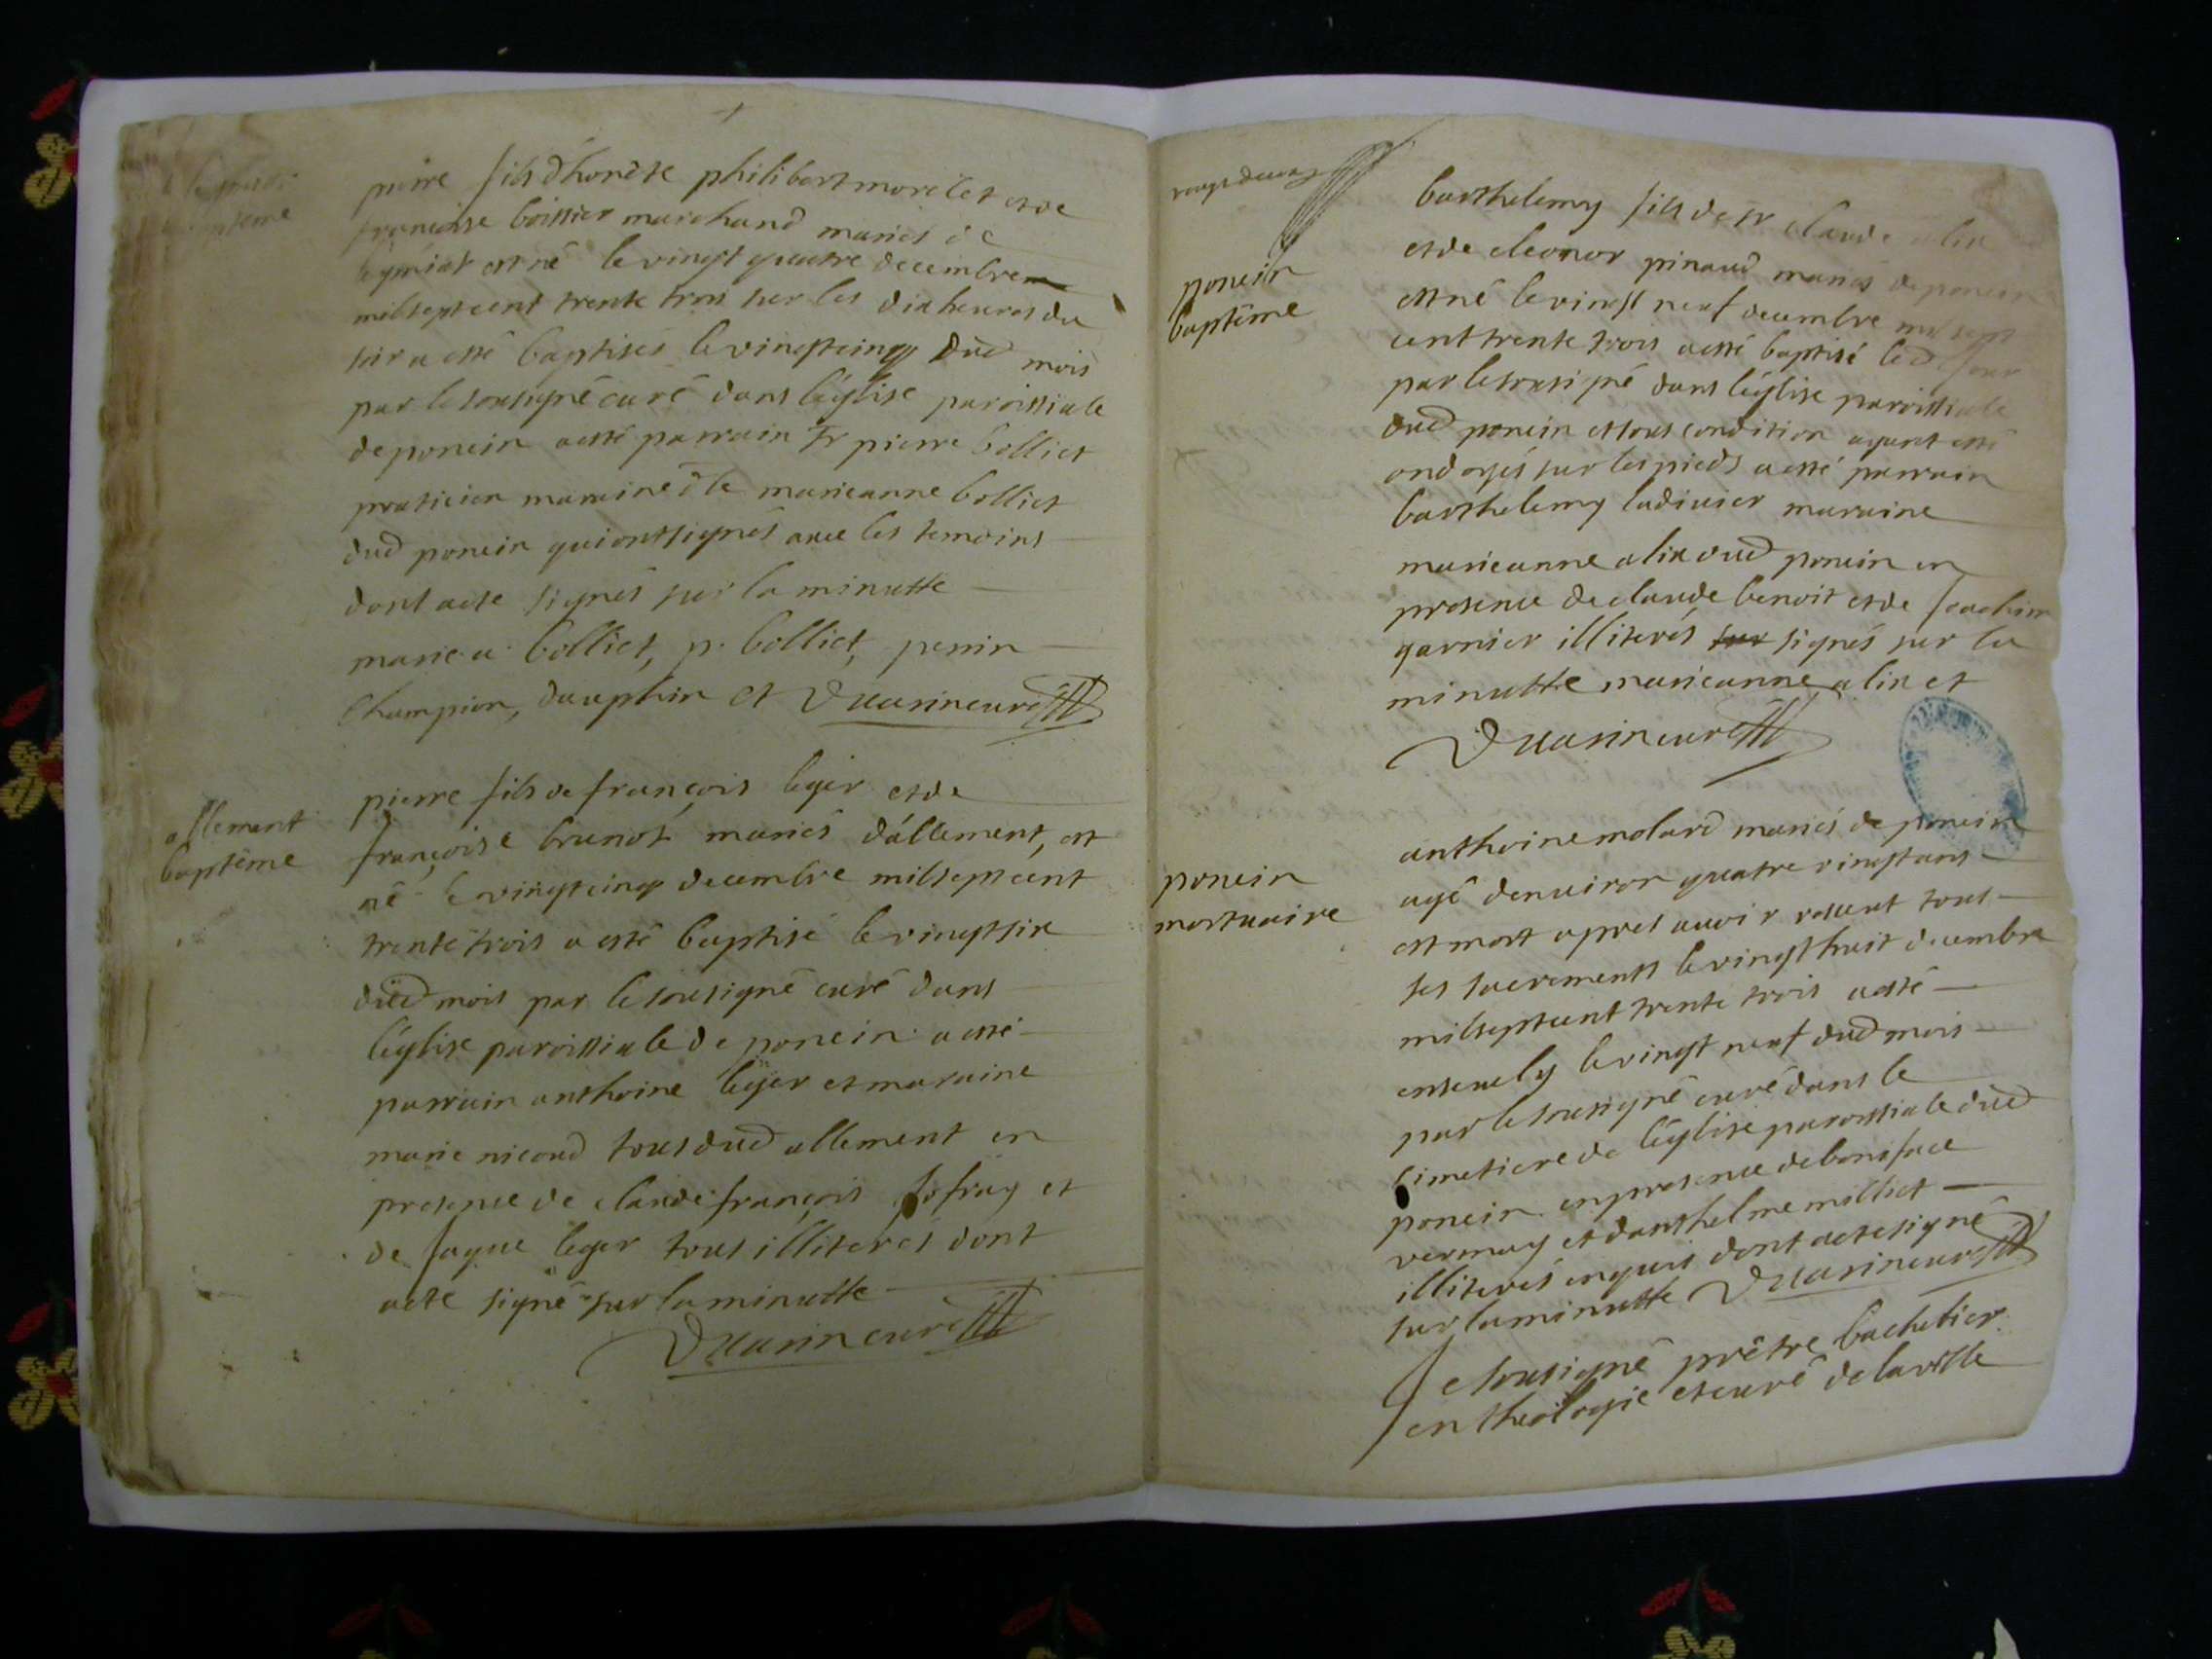 baptême
pierre fils d'honète philibert morelet et de
françoise boissier marchand mariés de
leymiat est né le vingt quatre decembre
mil sept cent trente trois sur les dix heures du
soir a esté baptisés le vingt cinq dud mois
par le sousigné curé dans l'église paroissiale
de poncin a esté parrain sr pierre bolliet
praticien maraine dlle marieanne bolliet
dud poncin qui ont signés avec les temoins
dont acte signés sur la minutte
marie a. bolliet, p. bolliet, perrin
Champion, dauphin et Duvarin curé
allement
baptême
pierre fils de françois leger et de
françoise brunot mariés d'allement, est
né le vingt cinq decembre mil sept cent
trente trois a esté baptisé le vingt six
dud mois par le sousigné curé dans
l'église paroissiale de poncin a esté
parrain anthoine leger et maraine
marie nicoud tous dud allement en
presence de claude françois et
de jaque leger tous illiterés dont
acte signé sur la minutte
Duvarin curé
poncin
baptême
barthelemy fils de sr claude alix
et de eleonor pinaud mariés de poncin
est né le vingt neuf decembre mil sept
cent trente trois a esté baptisé led jour
par le sousigné dans l'église paroissiale
dud poncin et sous condition ayant esté
ondoyés sur les pieds a esté parrain
barthelemy ladivier maraine
marieanne alix dud poncin en
presence de claude benoit et de joachim
garnier illiterés sur signés sur la
minutte marieanne alix et
Duvarin curé
poncin
mortuaire
anthoine molard mariés de poncin
agé denuiron quatre vingt ans
est mort apres auoir receut tous
ses sacrements le vingt huit decembre
mil sept cent trente trois a esté
enseuely le vingt neuf dud mois
par le sousigné curé dans le
cimetiere de l'église paroissiale dud
poncin en presence de boniface
vermay et danthelme milliet
illiterés enquis dont acte signé
sur la minutte Duvarin curé
Je sousigné prêtre bachelier
en theologie et curé de la ville